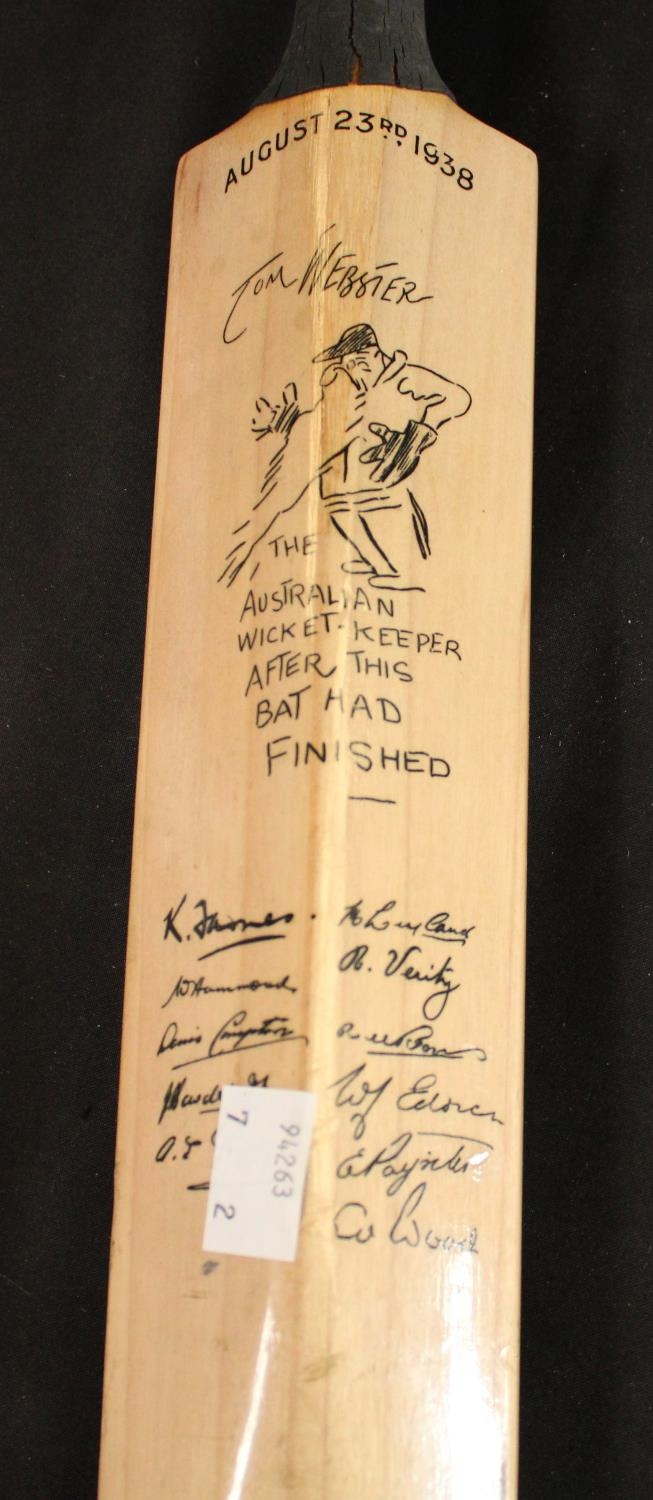 AUGUST 23RD 1938
TOM WEBSTER
THE
AUSTRALIAN
WICKET-KEEPER
AFTER THIS
BAT HAD
FINISHED
K. Farnes.
W Hammond
Denis Compton
M Leyland
H. Verity
W J Edrich
E Paynter
A Wood
94263
7 2